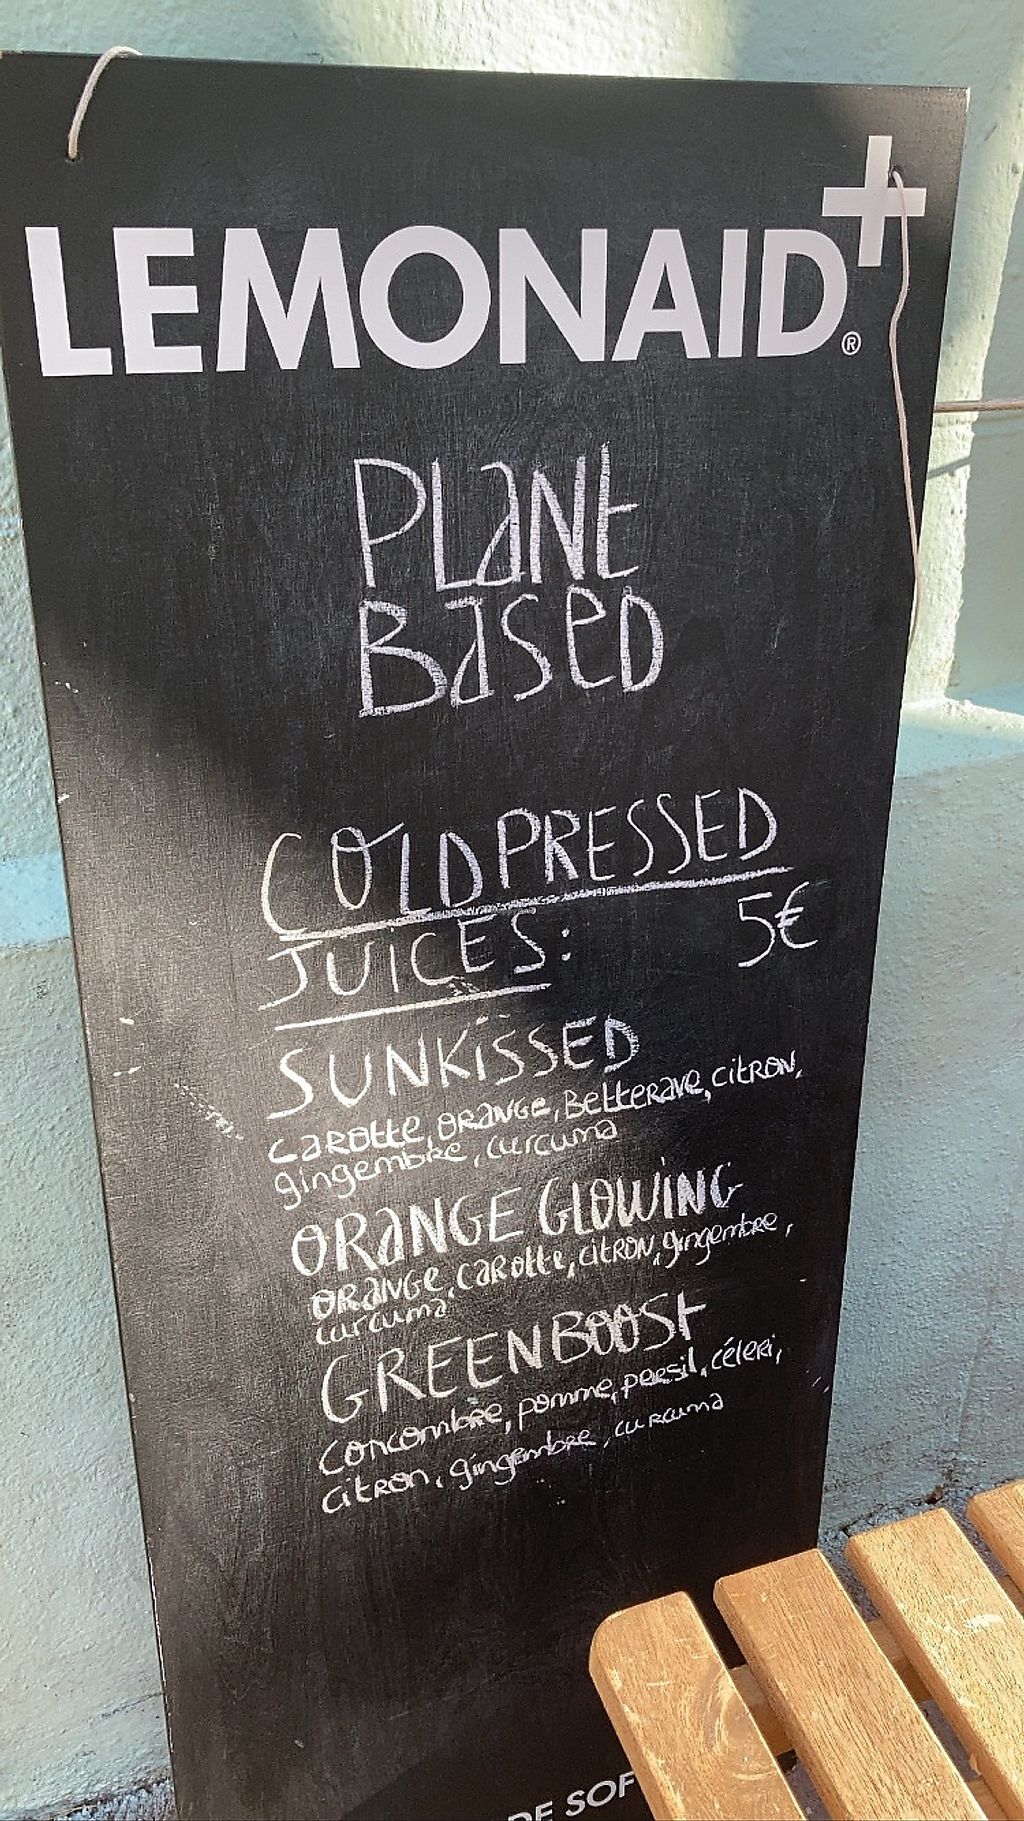 LEMONAID+®
PLaNt
BaSeD
COLDPRESSED
JUICES: 5€
SUNKiSSED
CaROtte, ORANGE, BetteRAVE, CitRON,
gingembre, curcuma
ORaNGE GLOWiNG
ORANGE, CaROtte, CitRON, gingembre,
curcuma
GREENBOOSt
Concombre, pomme, persil, céleri,
citron, gingembre, curcuma
DE SOF